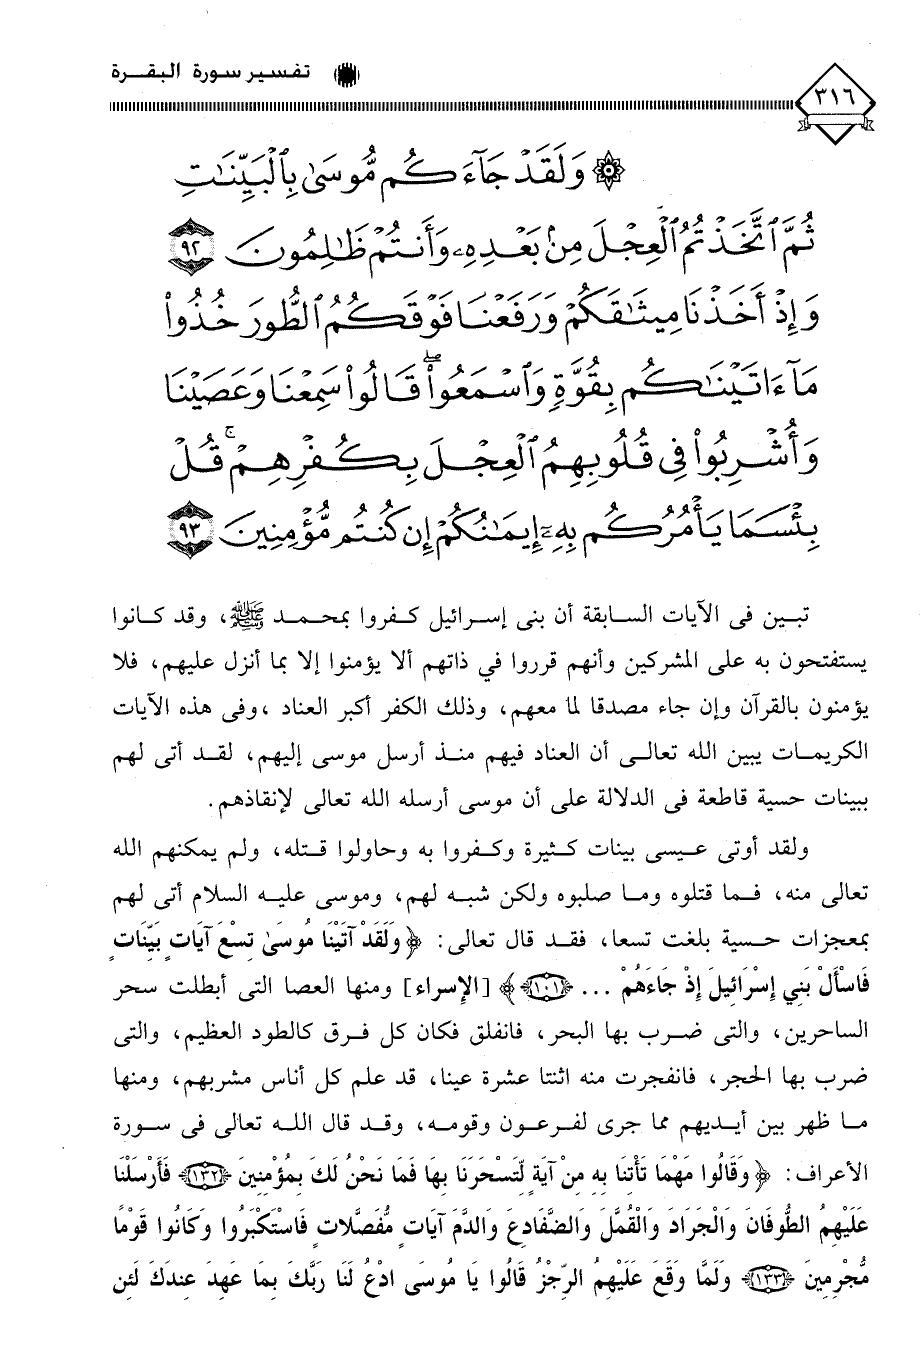 تفسير سورة البقرة
٣١٦
۞ وَلَقَدْ جَآءَكُم مُّوسَىٰ بِٱلْبَيِّنَٰتِ
ثُمَّ ٱتَّخَذْتُمُ ٱلْعِجْلَ مِنۢ بَعْدِهِۦ وَأَنتُمْ ظَٰلِمُونَ ٩٢
وَإِذْ أَخَذْنَا مِيثَٰقَكُمْ وَرَفَعْنَا فَوْقَكُمُ ٱلطُّورَ خُذُوا۟
مَآ ءَاتَيْنَٰكُم بِقُوَّةٍ وَٱسْمَعُوا۟ ۖ قَالُوا۟ سَمِعْنَا وَعَصَيْنَا
وَأُشْرِبُوا۟ فِى قُلُوبِهِمُ ٱلْعِجْلَ بِكُفْرِهِمْ ۚ قُلْ
بِئْسَمَا يَأْمُرُكُم بِهِۦٓ إِيمَٰنُكُمْ إِن كُنتُم مُّؤْمِنِينَ ٩٣
تبين فى الآيات السابقة أن بنى إسرائيل كفروا بمحمد ﷺ، وقد كانوا
يستفتحون به على المشركين وأنهم قرروا في ذاتهم ألا يؤمنوا إلا بما أنزل عليهم، فلا
يؤمنون بالقرآن وإن جاء مصدقا لما معهم، وذلك الكفر أكبر العناد ،وفى هذه الآيات
الكريمات يبين الله تعالى أن العناد فيهم منذ أرسل موسى إليهم، لقد أتى لهم
ببينات حسية قاطعة فى الدلالة على أن موسى أرسله الله تعالى لإنقاذهم.
ولقد أوتى عيسى بينات كثيرة وكفروا به وحاولوا قتله، ولم يمكنهم الله
تعالى منه، فما قتلوه وما صلبوه ولكن شبه لهم، وموسى عليه السلام أتى لهم
بمعجزات حسية بلغت تسعا، فقد قال تعالى: ﴿ وَلَقَدْ آتَيْنَا مُوسَىٰ تِسْعَ آيَاتٍ بَيِّنَاتٍ
فَاسْأَلْ بَنِي إِسْرَائِيلَ إِذْ جَاءَهُمْ ... ﴿١٠١﴾ ﴾ [الإسراء] ومنها العصا التى أبطلت سحر
الساحرين، والتى ضرب بها البحر، فانفلق فكان كل فرق كالطود العظيم، والتى
ضرب بها الحجر، فانفجرت منه اثنتا عشرة عينا، قد علم كل أناس مشربهم، ومنها
ما ظهر بين أيديهم مما جرى لفرعون وقومه، وقد قال الله تعالى فى سورة
الأعراف: ﴿ وَقَالُوا مَهْمَا تَأْتِنَا بِهِ مِنْ آيَةٍ لِّتَسْحَرَنَا بِهَا فَمَا نَحْنُ لَكَ بِمُؤْمِنِينَ ﴿١٣٢﴾ فَأَرْسَلْنَا
عَلَيْهِمُ الطُّوفَانَ وَالْجَرَادَ وَالْقُمَّلَ وَالضَّفَادِعَ وَالدَّمَ آيَاتٍ مُّفَصَّلَاتٍ فَاسْتَكْبَرُوا وَكَانُوا قَوْمًا
مُّجْرِمِينَ ﴿١٣٣﴾ وَلَمَّا وَقَعَ عَلَيْهِمُ الرِّجْزُ قَالُوا يَا مُوسَى ادْعُ لَنَا رَبَّكَ بِمَا عَهِدَ عِندَكَ لَئِن